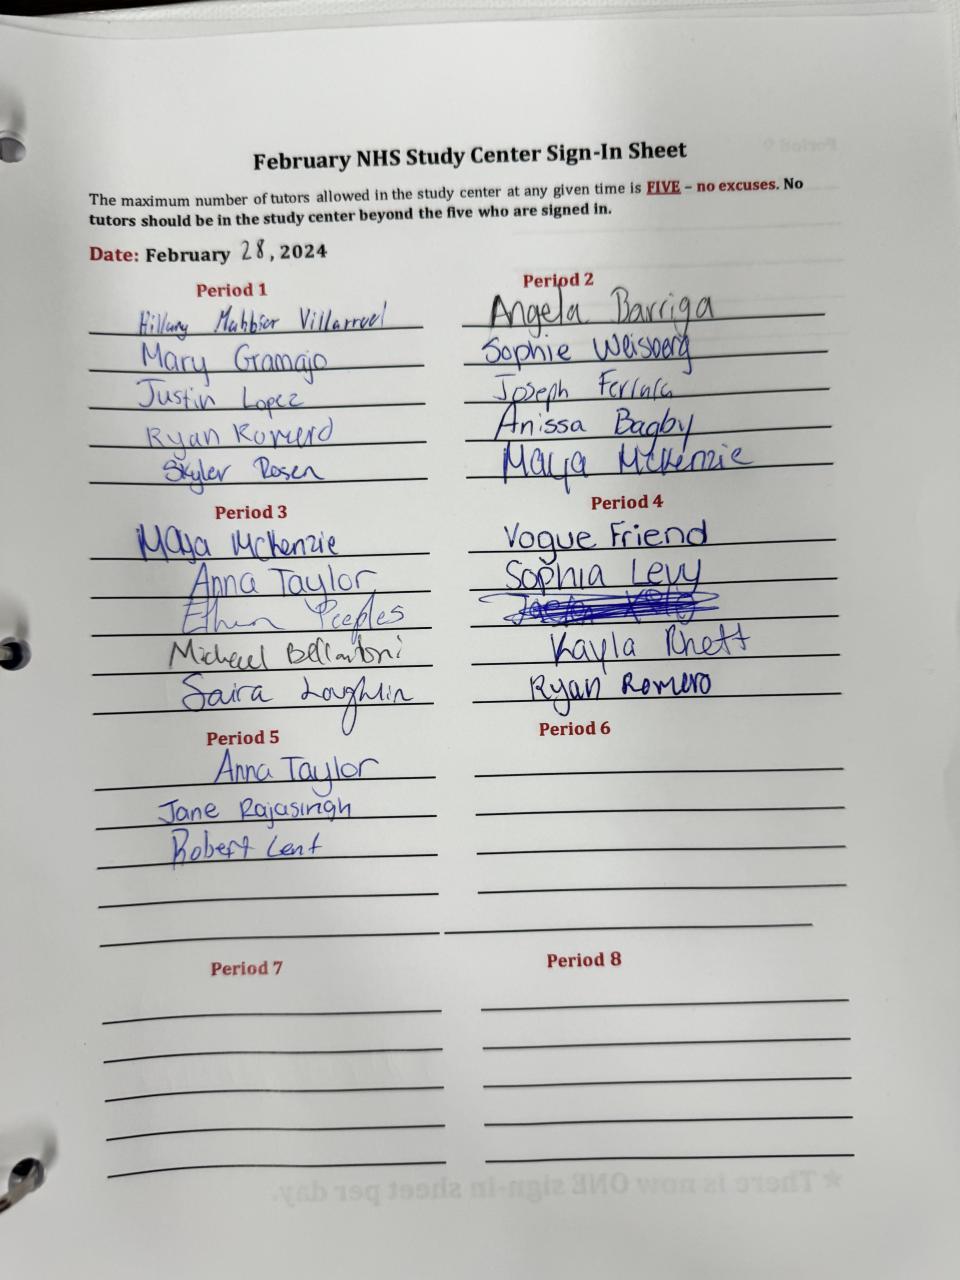 February NHS Study Center Sign-In Sheet
The maximum number of tutors allowed in the study center at any given time is FIVE – no excuses. No
tutors should be in the study center beyond the five who are signed in.
Date: February 28, 2024
Period 1
Hillary Villarruel
Mary Gramajo
Justin Lopez
Ryan Romero
Skyler Rosen
Period 2
Angela Barriga
Sophie Weisberg
Joseph
Anissa Bagby
Maya McKenzie
Period 3
Maya McKenzie
Anna Taylor
Ethan Peeples
Michael Bellantoni
Saira Loughlin
Period 4
Vogue Friend
Sophia Levy
Kayla Rhett
Ryan Romero
Period 5
Anna Taylor
Jane Rajasingh
Robert Lent
Period 6
Period 7
Period 8